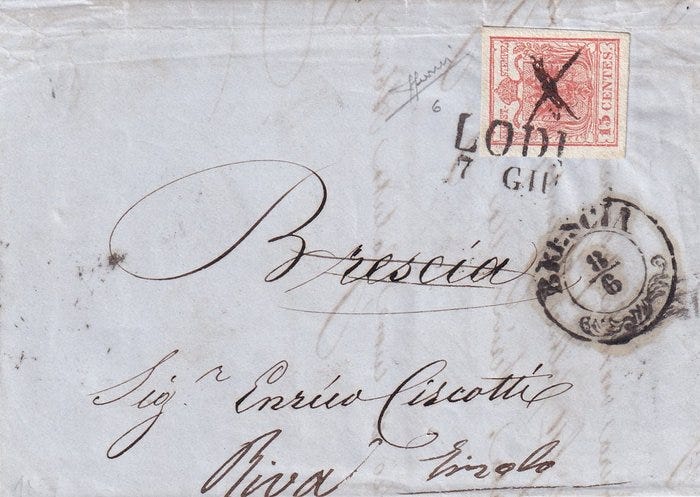 15 CENTES.
6
LODI
7 GIU
BRESCIA
8/6
Brescia
Sig.r Enrico Ciscotti
Riva